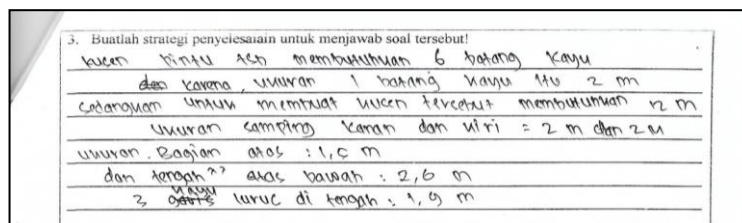 3. Buatlah strategi penyelesaian untuk menjawab soal tersebut!
kusen pintu tsb membutuhkan 6 batang kayu
karena, ukuran 1 batang kayu itu 2 m
sedangkan untuk membuat kusen tersebut membutuhkan 12 m
ukuran samping kanan dan kiri = 2 m dan 2 M
ukuran. Bagian atas : 1,5 m
dan tengah" atas bawah : 2,6 m
3 kayu lurus di tengah : 1,9 m